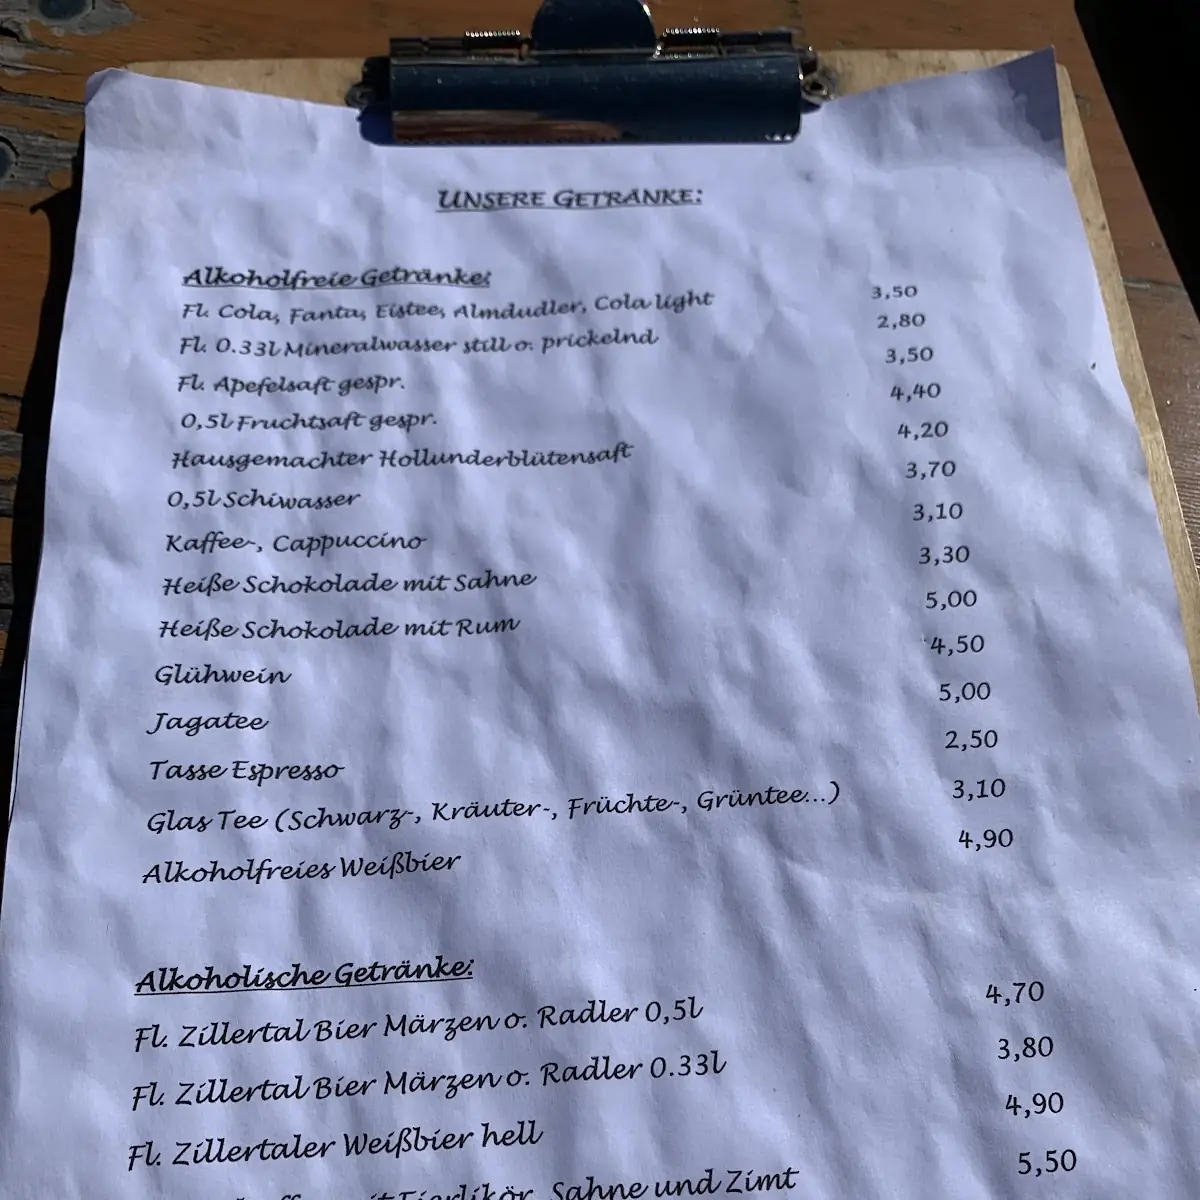 UNSERE GETRÄNKE:
Alkoholfreie Getränke:
Fl. Cola, Fanta, Eistee, Almdudler, Cola light 3,50
Fl. 0.33l Mineralwasser still o. prickelnd 2,80
Fl. Apefelsaft gespr. 3,50
0,5l Fruchtsaft gespr. 4,40
Hausgemachter Hollunderblütensaft 4,20
0,5l Schiwasser 3,70
Kaffee-, Cappuccino 3,10
Heiße Schokolade mit Sahne 3,30
Heiße Schokolade mit Rum 5,00
Glühwein 4,50
Jagatee 5,00
Tasse Espresso 2,50
Glas Tee (Schwarz-, Kräuter-, Früchte-, Grüntee...) 3,10
Alkoholfreies Weißbier 4,90
Alkoholische Getränke:
Fl. Zillertal Bier Märzen o. Radler 0,5l 4,70
Fl. Zillertal Bier Märzen o. Radler 0.33l 3,80
Fl. Zillertaler Weißbier hell 4,90
Eierlikör, Sahne und Zimt 5,50